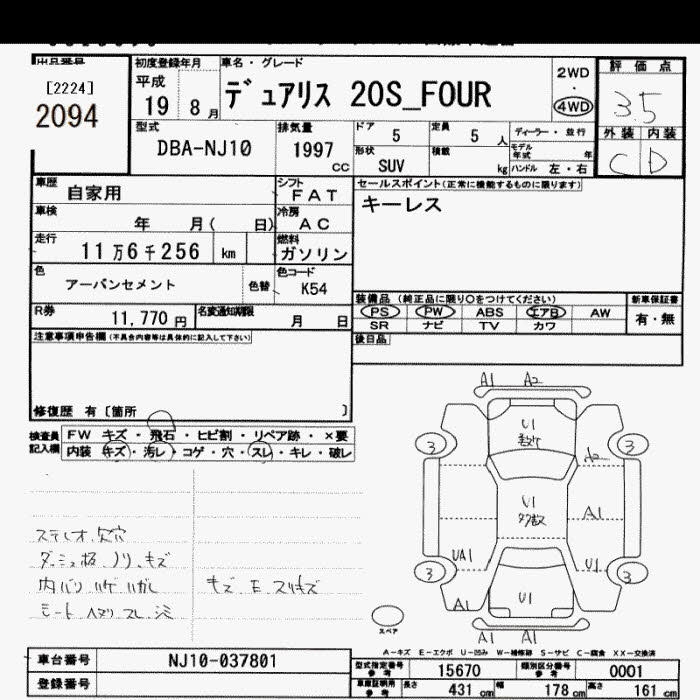 初度登録年月
車名・グレード
平成
19 8月
デュアリス 20S_FOUR
2WD
・
4WD
評価点
3.5
外装 内装
C D
[2224]
2094
型式
DBA-NJ10
排気量
1997 CC
ドア 5
定員 5 人
ディーラー・並行
形状 SUV
積載 kg
モデル年式 年
ハンドル 左・右
車歴 自家用
シフト FAT
セールスポイント(正常に機能するものに限ります)
キーレス
車検 年 月( 日)
冷房 AC
走行 11万6千256 km
燃料 ガソリン
色 アーバンセメント
色替
色コード K54
R券 11,770 円
名変通知期限 月 日
装備品 (純正品に限り○をつけてください)
PS PW ABS エアB AW
SR ナビ TV カワ
新車保証書
有・無
注意事項申告欄(不具合内容等は具体的に記入して下さい)
後日品
修復歴 有〔箇所 〕
検査員記入欄
FW キズ・飛石・ヒビ割・リペア跡・×要
内装 キズ・汚レ・コゲ・穴・スレ・キレ・破レ
ステレオ.欠穴
ダッシュ板.ノリ.キズ
内バリ ハゲハガレ
シート ヘタリ スレ.シミ
キズ.E.スリキズ
A1 A2
U1
3 3
A2
U1
多数
A1
UA1 U1
3 3
A1 U1
A1 A1
スペア
A-キズ E-エクボ U-凹み W-補修跡 S-サビ C-腐食 XX-交換済
車台番号 NJ10-037801
登録番号
型式指定番号 参考 15670
類別区分番号 参考 0001
車庫証明用 参考 長さ 431 cm 幅 178 cm 高さ 161 cm